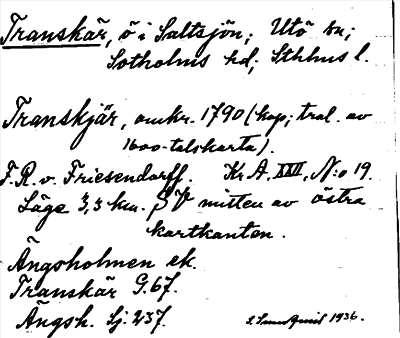 Transkär, ö i Saltsjön; Utö sn;
Sotholms hd; Sthlms l.
Transkjär, omkr. 1790 (kop; trol. av
1600-talskarta).
F. R. v. Friesendorff. Kr. A. XXII, N:o 19.
Läge 3,3 km. SV mitten av östra
kartkanten.
Ängsholmen ek.
Transkär G. 67.
Ängsh. Sj. 237.
1936.